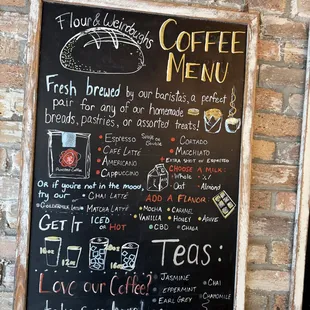 Flour & Weirdoughs
COFFEE
MENU
Fresh brewed by our barista's, a perfect
pair for any of our homemade
breads, pastries, or assorted treats!
Espresso
Single or Double
Café Latte
Americano
Cappuccino
Cortado
Macchiato
+ Extra shot of Espresso
Choose a Milk:
Whole
2%
Oat
Almond
Or if you're not in the mood,
try our
Chai Latté
Matcha Latté
Add a Flavor:
Mocha
Caramel
Vanilla
Honey
CBD
Chaga
GET IT
ICED
or HOT
16oz
12oz
Teas:
Jasmine
Peppermint
Earl Grey
Chai
Chamomile
Love our Coffee?